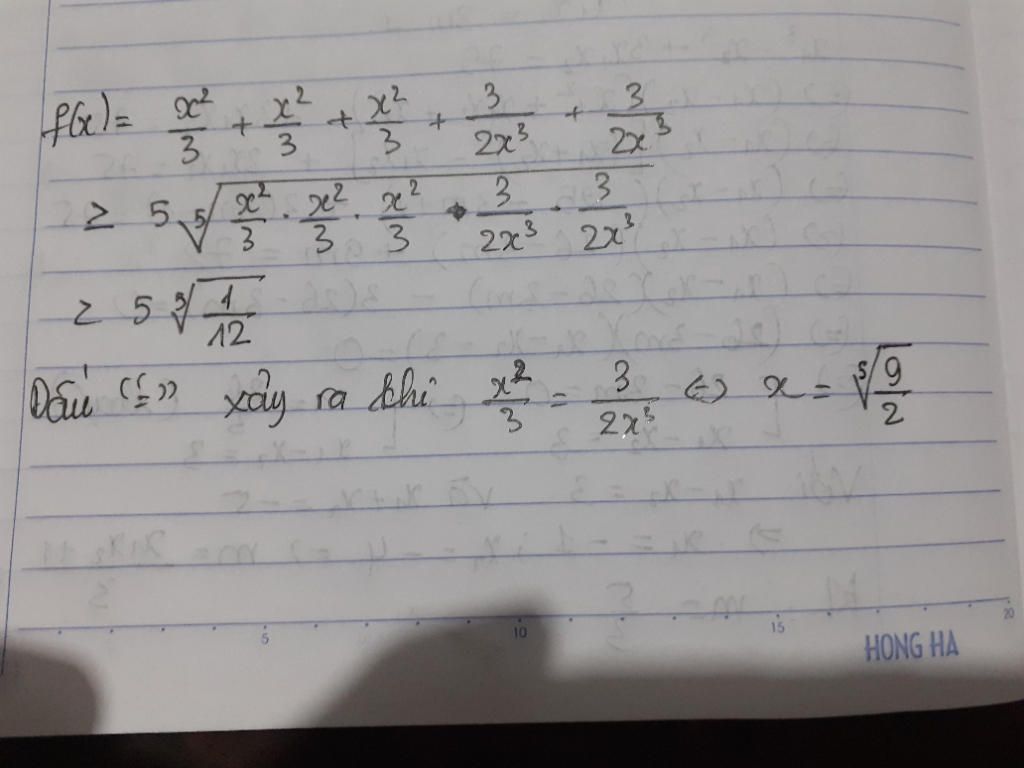 f(x) = x²/3 + x²/3 + x²/3 + 3/2x³ + 3/2x³
≥ 5 ⁵√(x²/3 · x²/3 · x²/3 · 3/2x³ · 3/2x³)
≥ 5 ⁵√(1/12)
Dấu "=" xảy ra khi x²/3 = 3/2x³ ⇔ x = ⁵√(9/2)
5 10 15 20
HONG HA